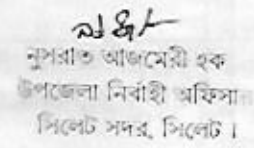 নুসরাত আজমেরী হক
উপজেলা নির্বাহী অফিসার
সিলেট সদর, সিলেট।